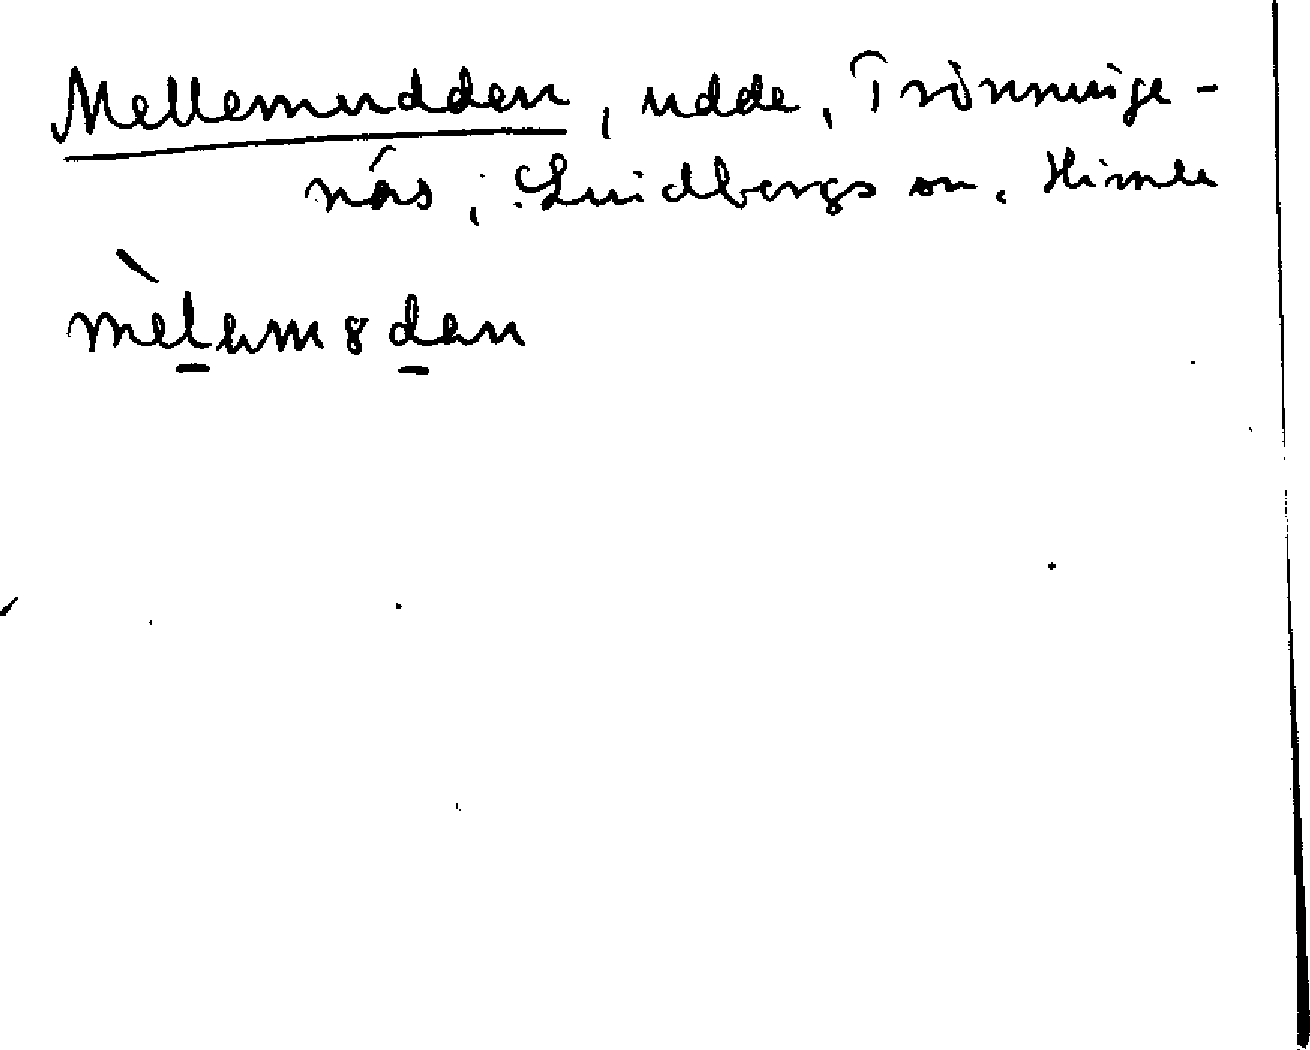 Mellemudden, udde, Trönninge-
näs, Lindbergs sn. Himle
mèlem8den